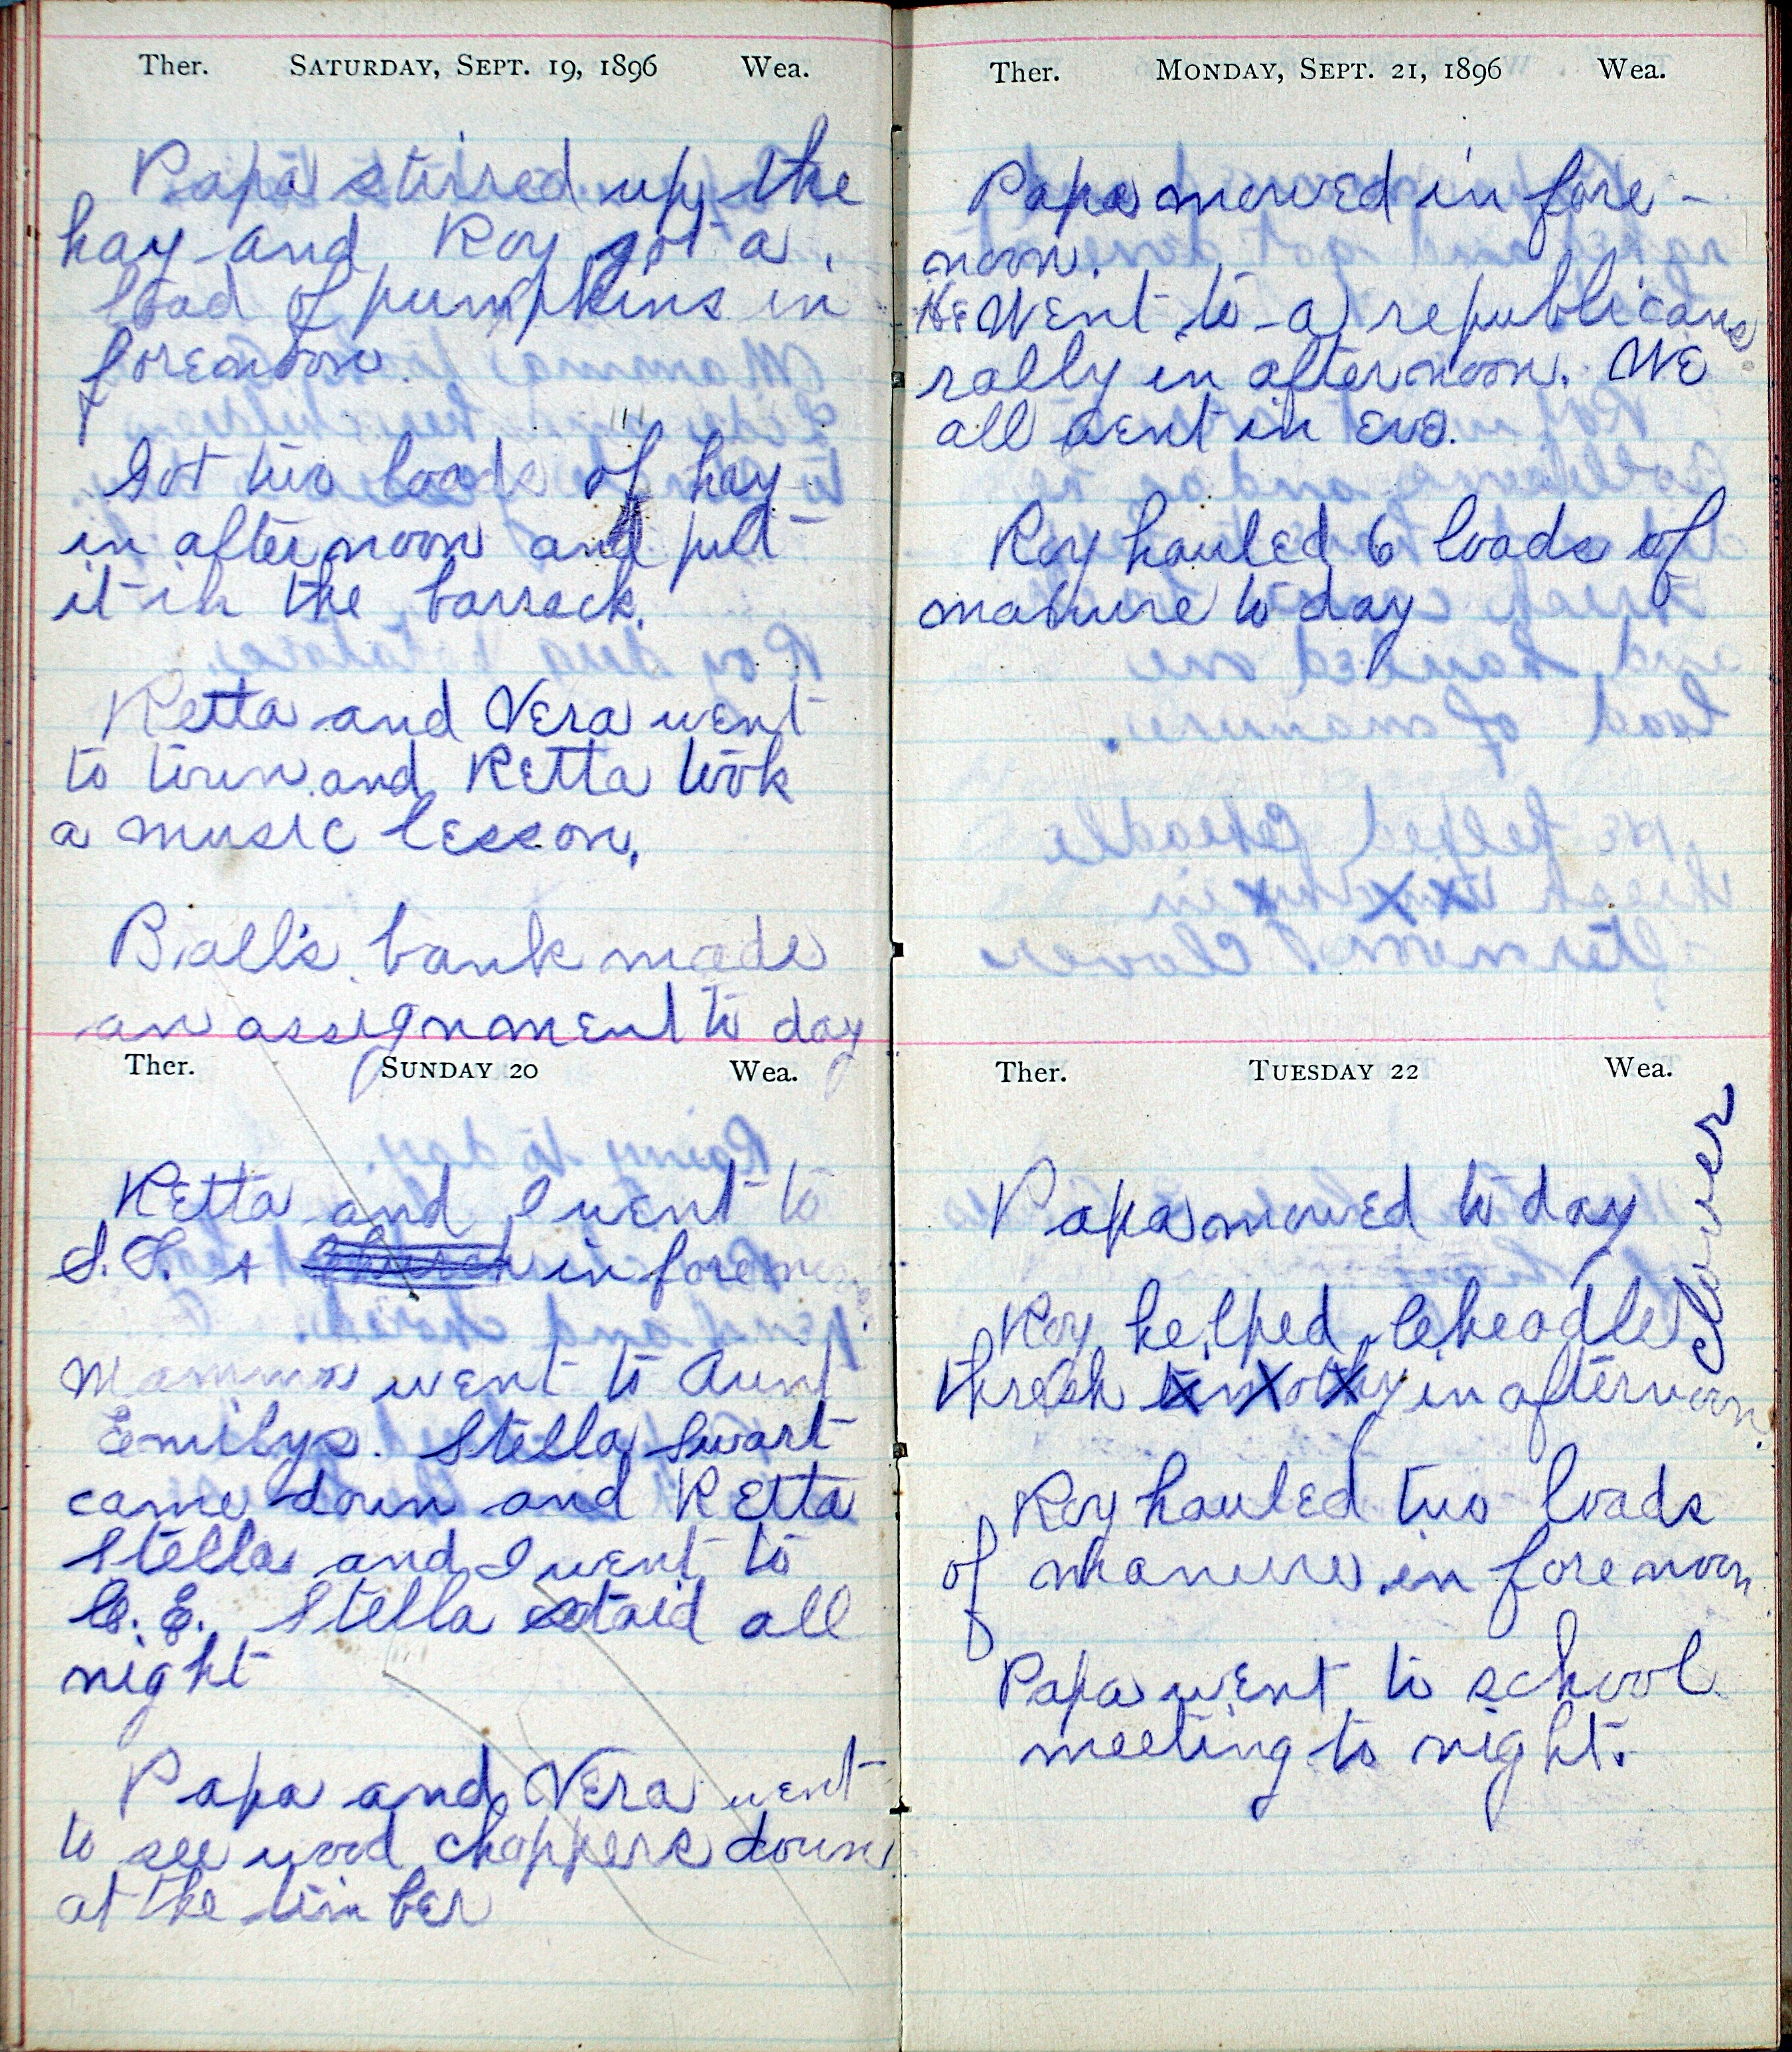 Ther. SATURDAY, SEPT. 19, 1896 Wea.
Papa stirred up the
hay and Roy got a
load of pumpkins in
forenoon.
Got two loads of hay
in afternoon and put
it in the barrack.
Retta and Vera went
to town and Retta took
a music lesson.
Ball's bank made
an assignment to day
Ther. SUNDAY 20 Wea.
Retta and I went to
S.S. + church in forenoon.
Mamma went to Aunt
Emilys. Stella Swart
came down and Retta
Stella and I went to
C. E. Stella staid all
night
Papa and Vera went
to see wood choppers down
at the timber
Ther. MONDAY, SEPT. 21, 1896 Wea.
Papa mowed in fore-
noon.
He Went to a republicans
rally in afternoon. We
all went in eve.
Roy hauled 6 loads of
manure to day
Ther. TUESDAY 22 Wea.
Papa mowed to day
clover
Roy helped Leheadle
thresh timothy in afternoon.
Roy hauled two loads
of manure in forenoon
Papa went to school
meeting to night.